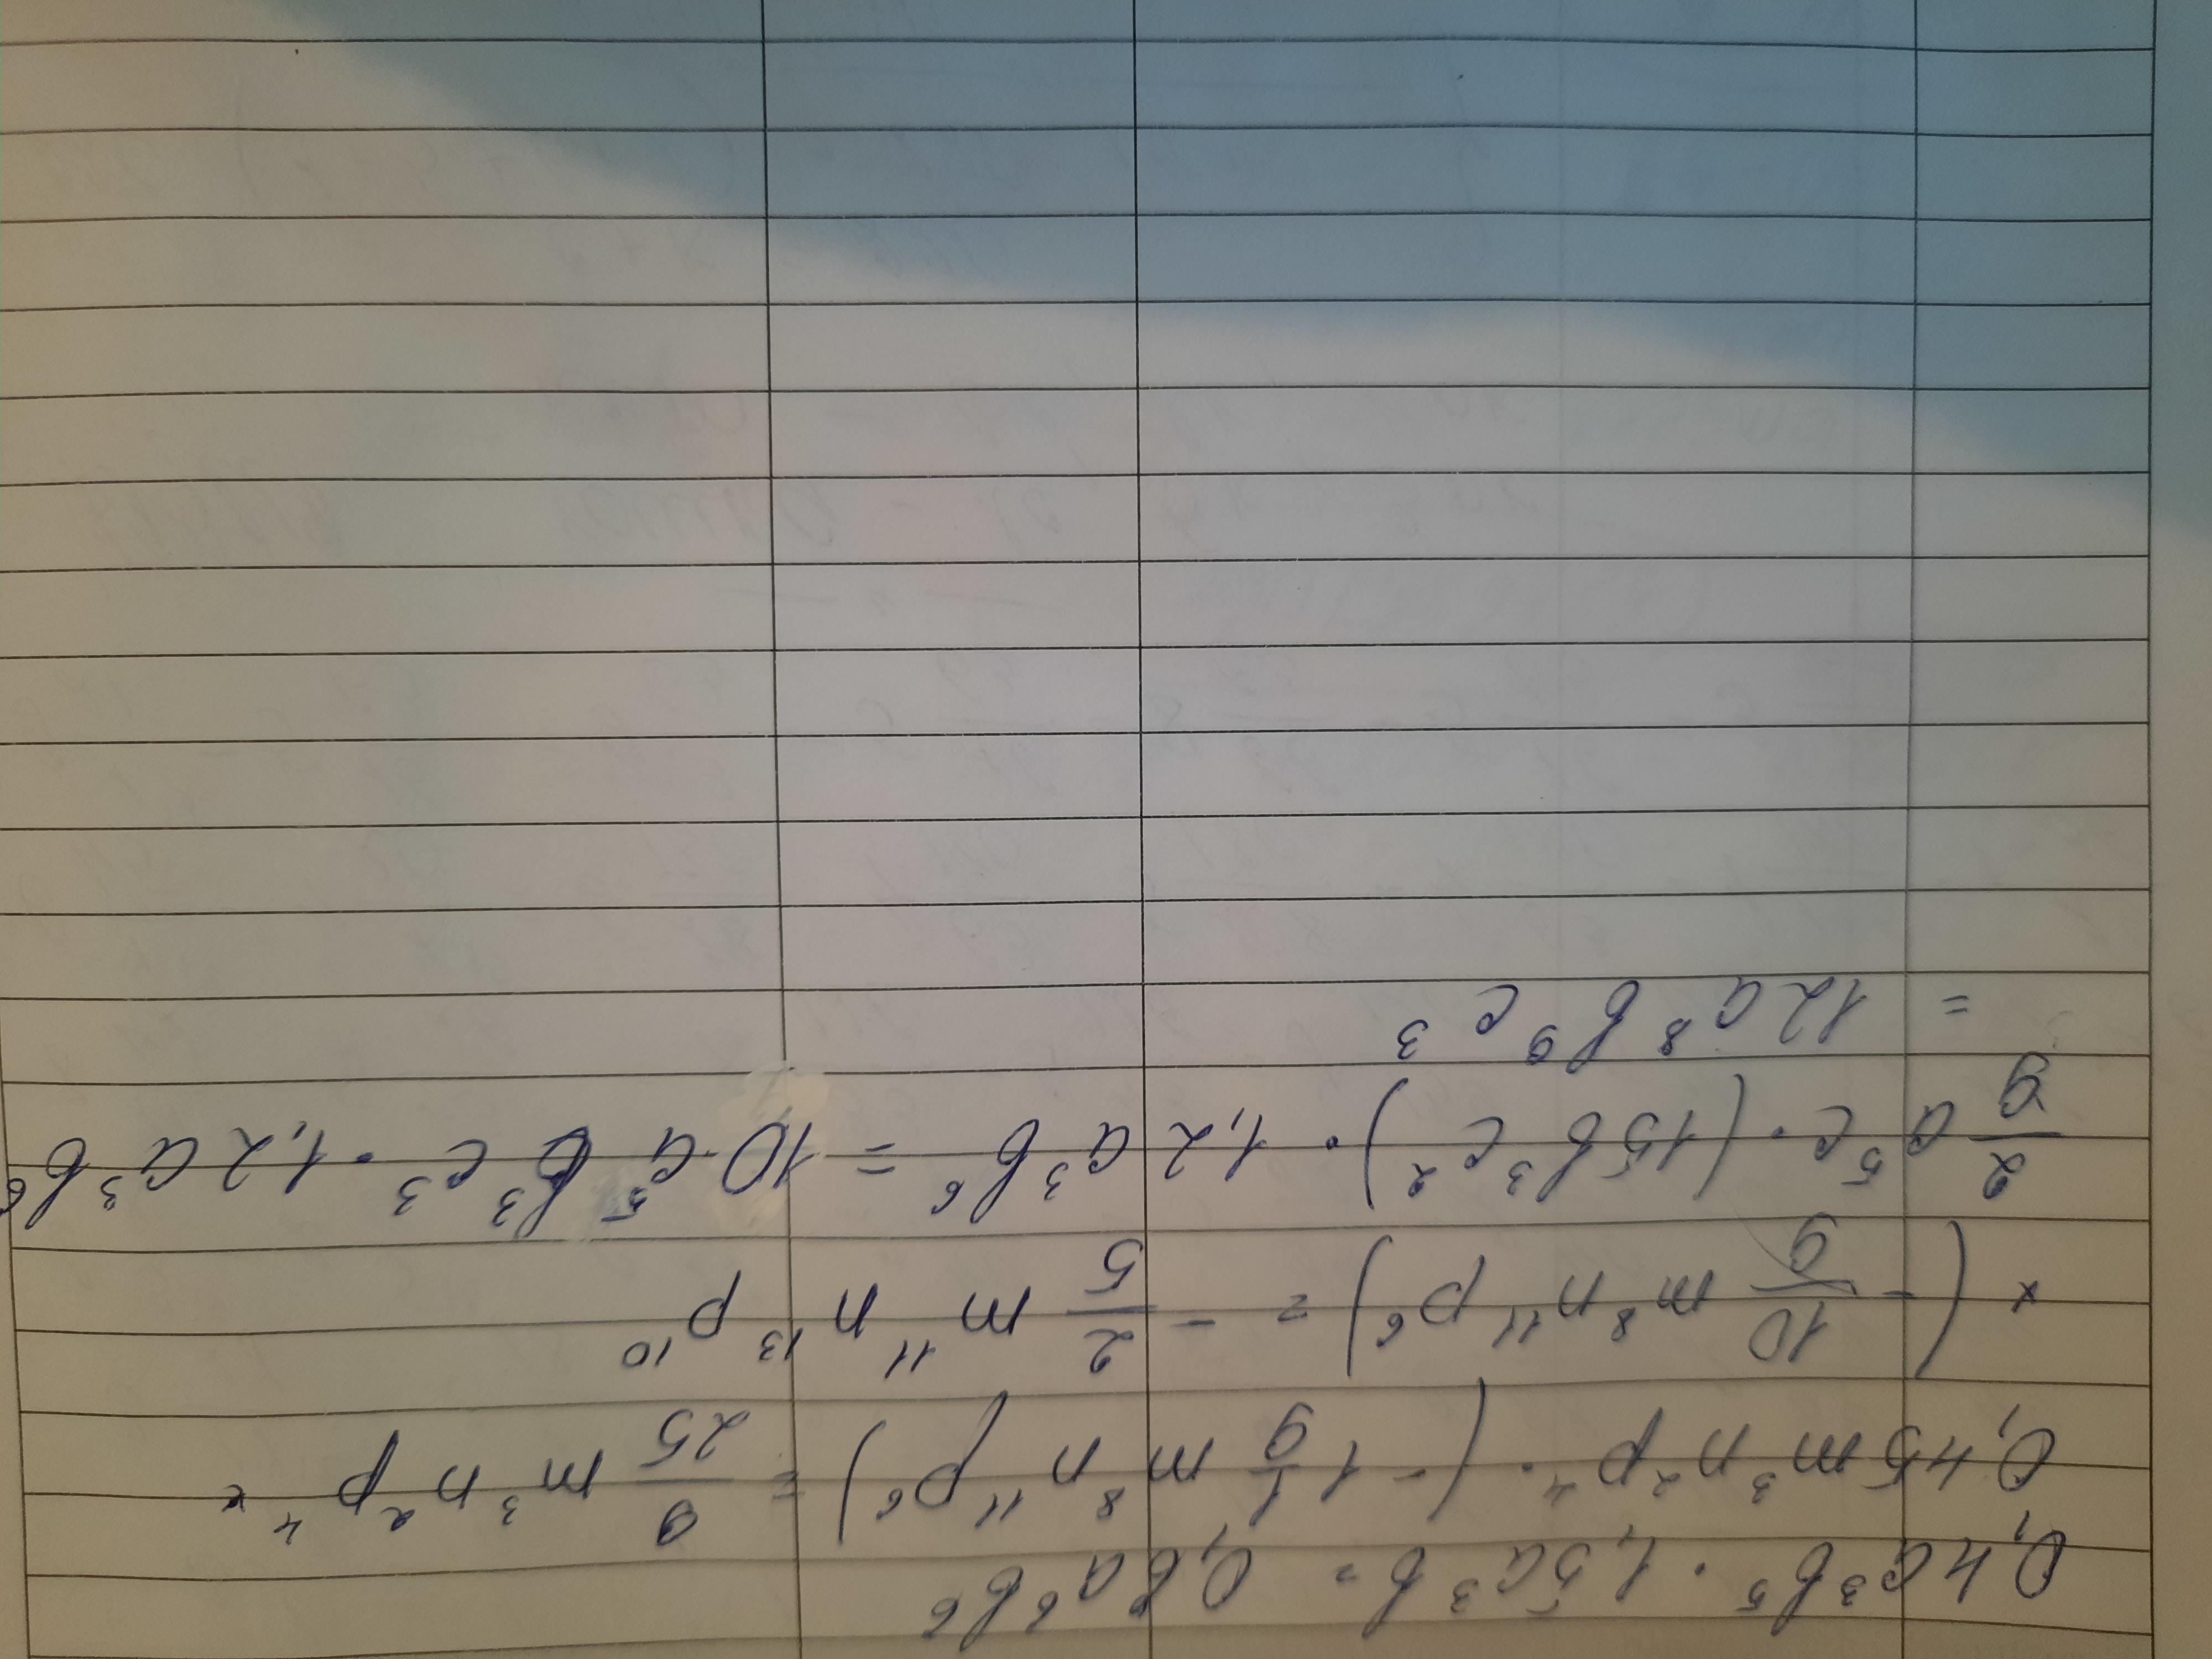 0,4a³b⁵ · 1,5a³b = 0,6a⁶b⁶
0,45m³n²p⁴ · (-1 1/9 m⁸n¹¹p⁶) = 9/25 m³n²p⁴ ×
× (-10/9 m⁸n¹¹p⁶) = -2/5 m¹¹n¹³p¹⁰
2/9 a⁵c · (15b³c²) · 1,2a³b⁶ = 10·a⁵b³c³ · 1,2a³b⁶
= 12a⁸b⁹c³